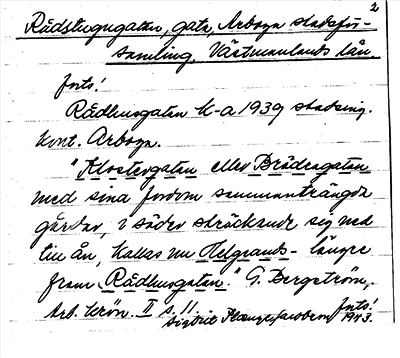 2
Rådstugugatan, gata, Arboga stadsför-
samling. Västmanlands län.
forts!
Rådhusgatan K-a 1939 stadsing.
kont. Arboga.
"Klostergatan eller Brädragatan
med sina fordom sammanträngda
gårdar, i söder sträckande sig ned
till ån, kallas nu Helgeands- längre
fram Rådhusgatan." G. Bergström,
Arb. krön. II s. 11. forts!
Sigbrit Plænge Jacobson 1943.